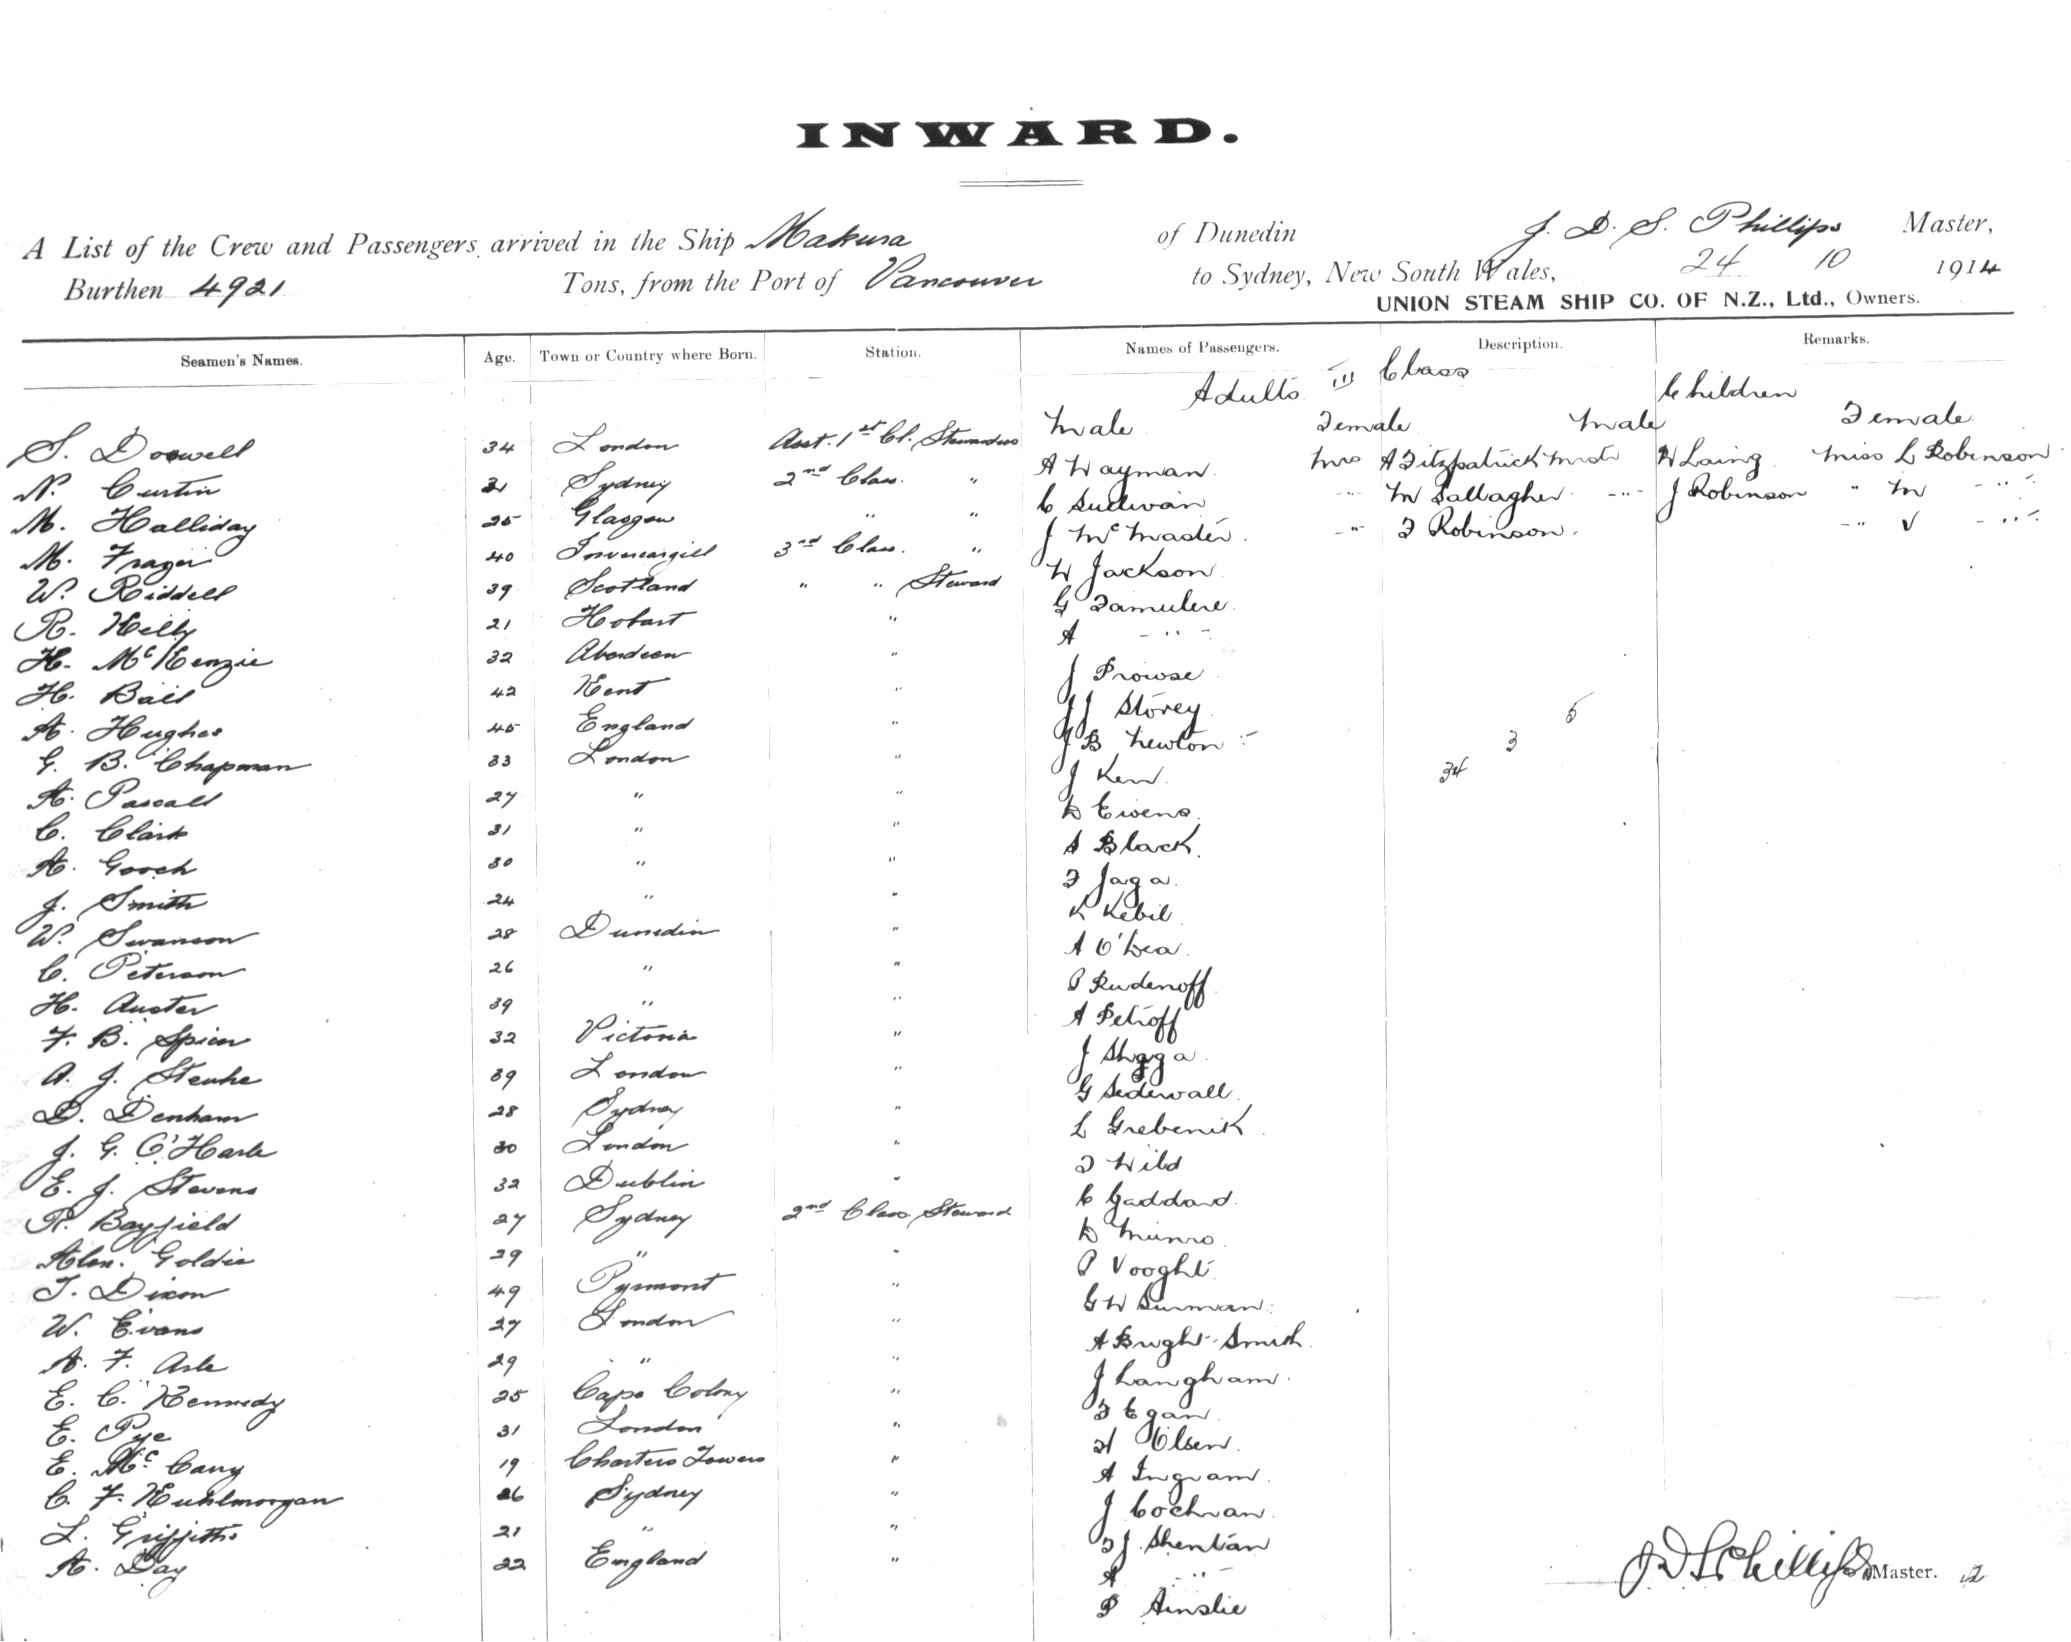 INWARD.
A List of the Crew and Passengers arrived in the Ship Makura of Dunedin J. D. S. Phillips Master,
Burthen 4921 Tons, from the Port of Vancouver to Sydney, New South Wales, 24 10 1914
UNION STEAM SHIP CO. OF N.Z., Ltd., Owners.
Seamen's Names. Age. Town or Country where Born. Station. Names of Passengers. Description. Remarks.
Adults III Class Children
Male Female Male Female
S. Doswell 34 London Asst. 1st Cl. Stewardess A Wayman Mrs A Fitzpatrick Mstr W Laing Miss L Robinson
N. Curtin 31 Sydney 2nd Class. " C Sullivan -"- M Gallagher -"- J Robinson " M -"-
M. Halliday 25 Glasgow " " J McMaster -"- F Robinson. -"- V -"-
M. Frazer 40 Invercargill 3rd Class. " W Jackson
W. Riddell 39 Scotland " " Steward G Famulere
R. Kelly 21 Hobart " A -"-
H. McKenzie 32 Aberdeen " J Prowse
H. Ball 42 Kent " J J Storey
A. Hughes 45 England " J B Newton
G. B. Chapman 33 London " J Kerr
A. Pascall 27 " " D Ewens
C. Clark 31 " " S Black
A. Gooch 30 " " F Jaga
J. Smith 24 " " K Kebil
W. Swanson 28 Dunedin " A O'Dea
C. Peterson 26 " " P Rudenoff
H. Auster 39 " " A Petroff
F. B. Spicer 32 Victoria " J
A. J. Stenhe 39 London " G Sederwall
D. Denham 28 Sydney " L Grebenik
J. G. O'Harle 30 London " F Wild
E. J. Stevens 32 Dublin " C Gaddard
R. Bayfield 27 Sydney 2nd Class Steward D Munro
Alex. Goldie 29 " " P Vooght
T. Dixon 49 Pyrmont " G W Surman
W. Evans 27 London " A Bright-Smith
A. F. Asle 29 " " J Langham
E. C. Kennedy 25 Cape Colony " F Egan
E. Pye 31 London " H Olsen
E. McCany 19 Charters Towers " A Ingram
C. F. Kuhlmorgan 26 Sydney " J Cochran
L. Griffiths 21 " " F J Shentan
A. Day 22 England " A -"-
P Ainslie
5
3
34
J D S Phillips Master. 12